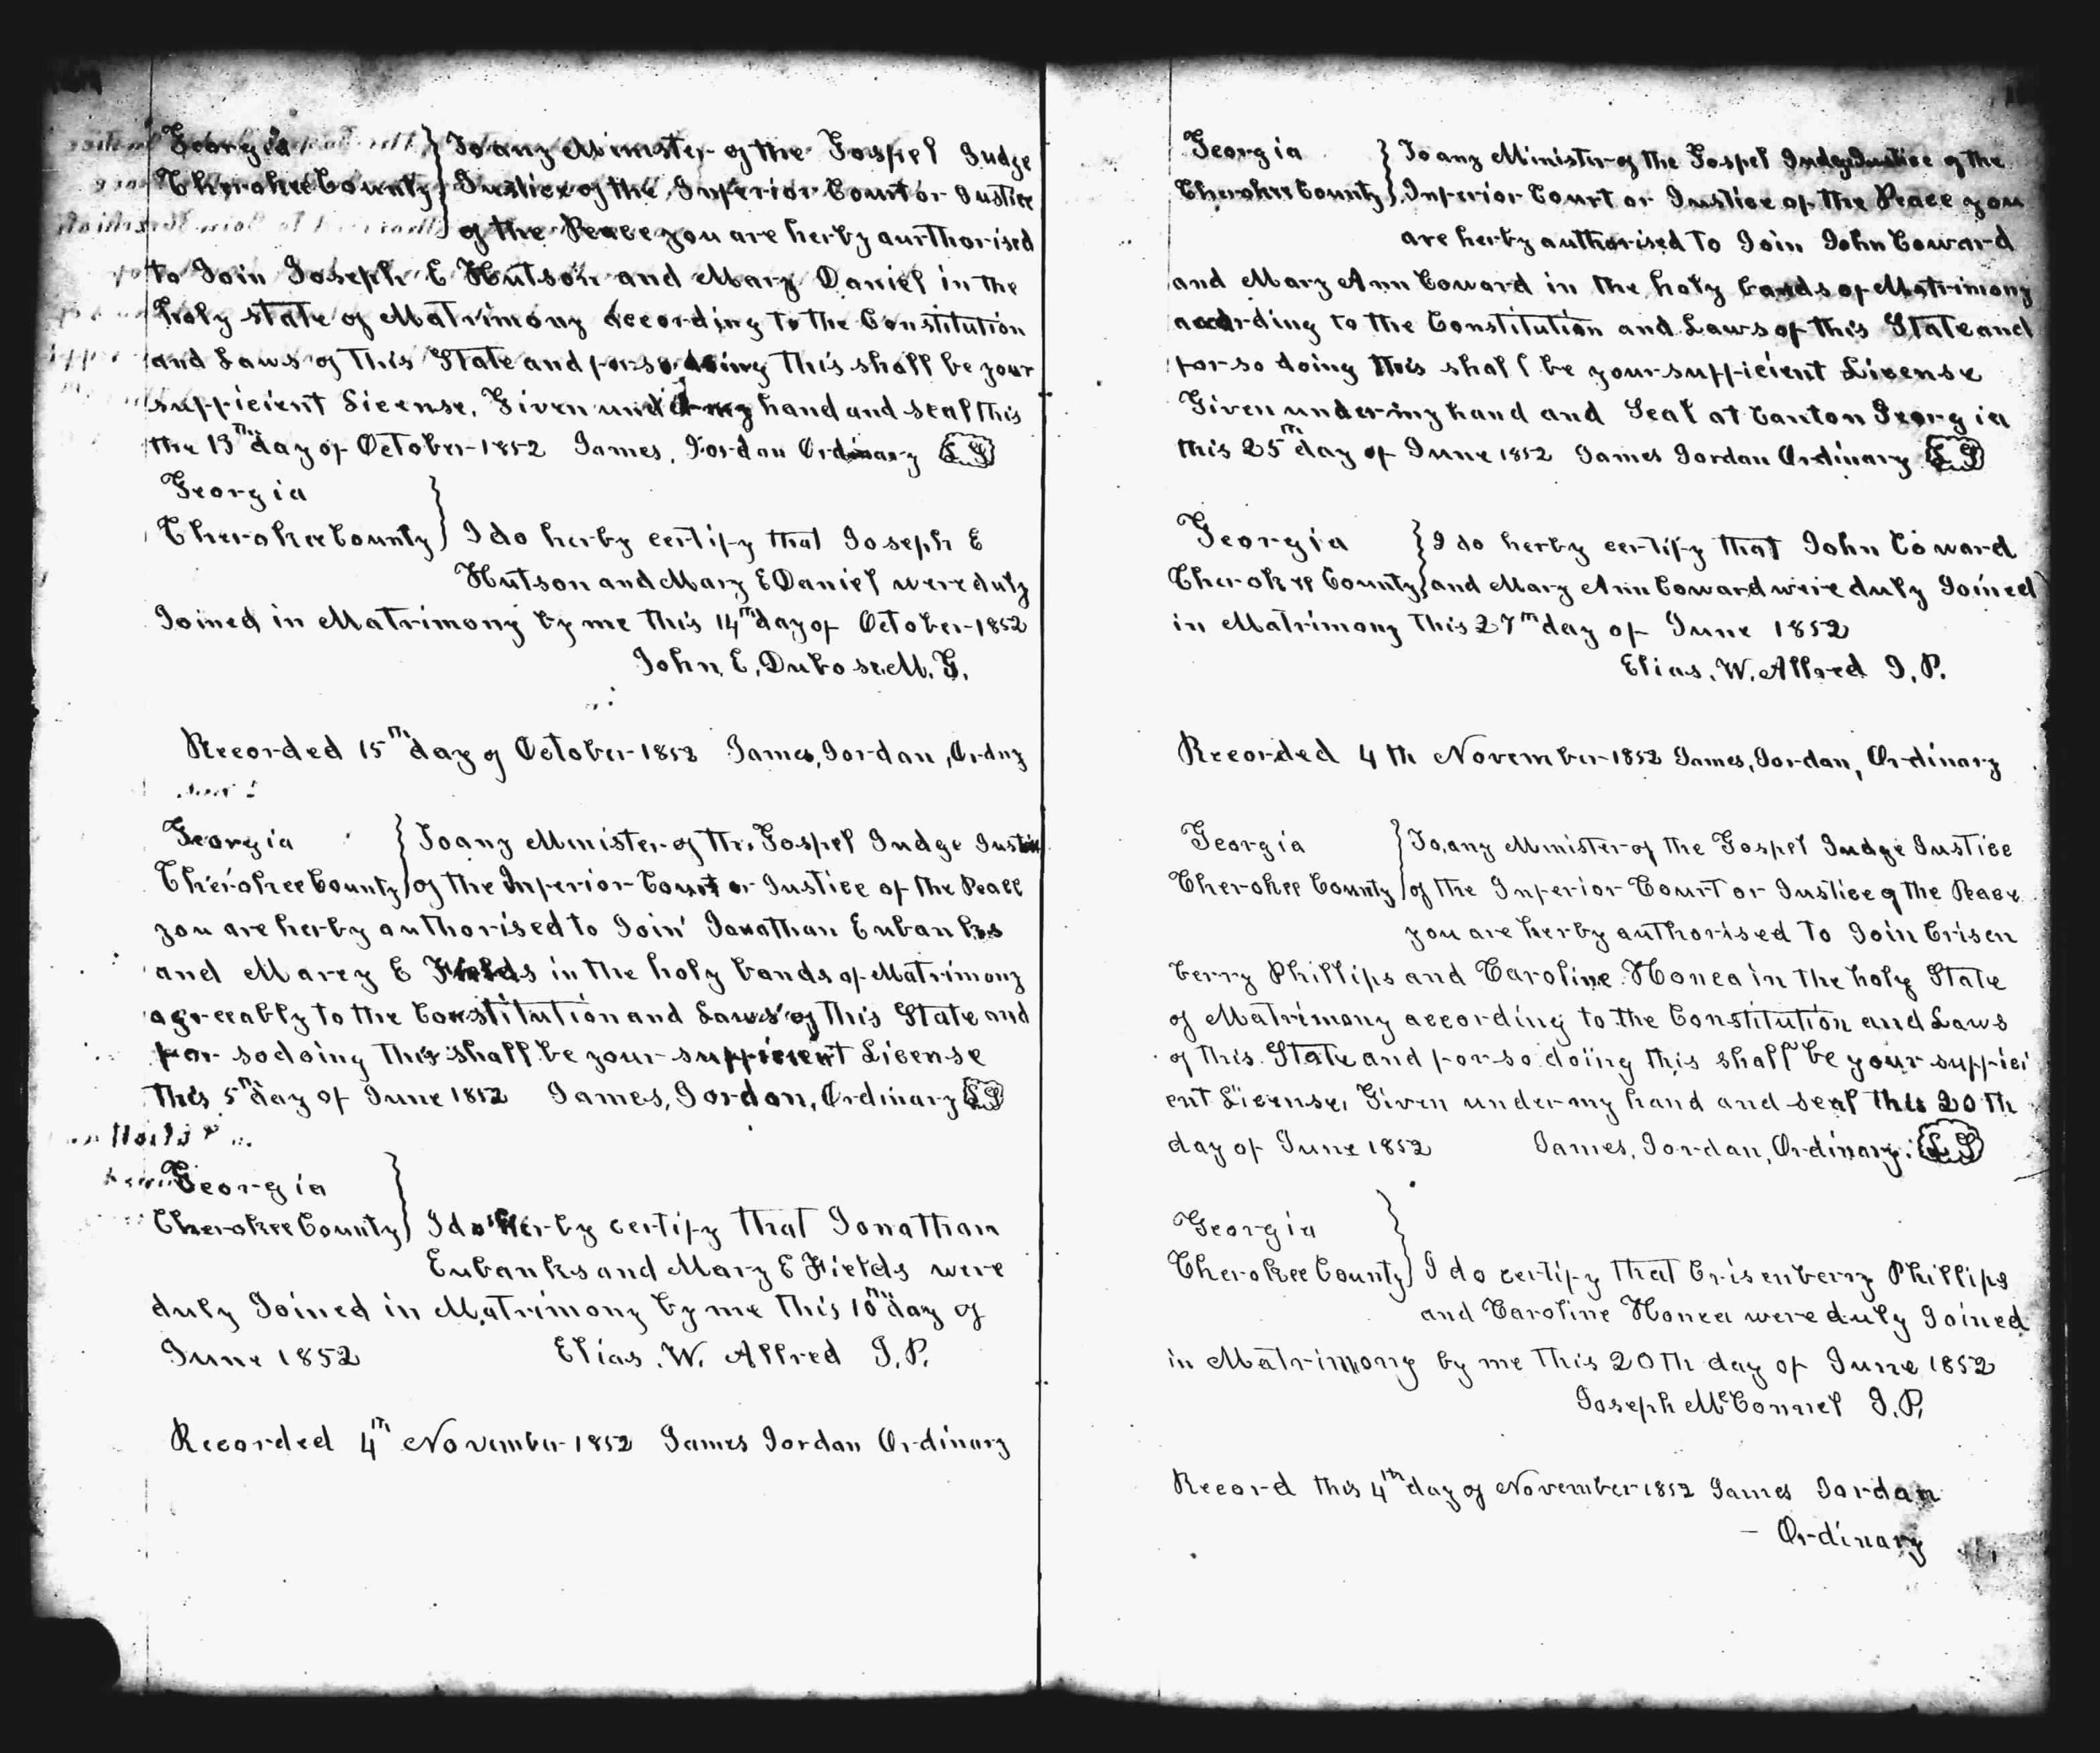 Georgia
Cherokee County } To any Minister of the Gospel Judge
Justice of the Inferior Court or Justice
of the Peace you are herby aurthorised
to Join Joseph E Hutson and Mary Daniel in the
holy state of Matrimony according to the Constitution
and Laws of This State and for so doing This shall be your
sufficient License. Given under my hand and seal this
the 13th day of October 1852 James, Jordan Ordinary LS
Georgia
Cherokee County } I do herby certify that Joseph E
Hutson and Mary E Daniel were duly
Joined in Matrimony by me this 14th day of October 1852
John, E, Dubose M. G.
Recorded 15th day of October 1852 James, Jordan, Ordny
Georgia
Cherokee County } To any Minister of the Gospel Judge Justice
of the Inferior Court or Justice of the Peace
you are herby authorised to Join Jonathan Eubanks
and Marey E Fields in the holy bands of Matrimony
agreeably to the Constitution and Laws of This State and
for so doing this shall be your sufficient License
This 5th day of June 1852 James, Jordon, Ordinary LS
Georgia
Cherokee County } I do herby certify that Jonathan
Eubanks and Mary E Fields were
duly Joined in Matrimony by me this 10th day of
June 1852 Elias. W. Allred J. P.
Recorded 4th November 1852 James Jordan Ordinary
Georgia
Cherokee County } To any Minister of the Gospel Judge Justice of the
Inferior Court or Justice of the Peace you
are herby authorised to Join John Coward
and Mary Ann Coward in the holy bands of Matrimony
according to the Constitution and Laws of this State and
for so doing this shall be your sufficient License
Given under my hand and Seal at Canton Georgia
this 25th day of June 1852 James Jordan Ordinary LS
Georgia
Cherokee County } I do herby certify that John Coward
and Mary Ann Coward were duly Joined
in Matrimony this 27th day of June 1852
Elias. W. Allred J. P.
Recorded 4th November 1852 James, Jordan, Ordinary
Georgia
Cherokee County } To, any Minister of the Gospel Judge Justice
of the Inferior Court or Justice of the Peace
you are herby authorised to Join Crisen
berry Phillips and Caroline Honea in the holy State
of Matrimony according to the Constitution and Laws
of this State and for so doing this shall be your suffici
ent License, Given under my hand and seal this 20th
day of June 1852 James, Jordan, Ordinary. LS
Georgia
Cherokee County } I do certify that Crisenberry Phillips
and Caroline Honea were duly Joined
in Matrimony by me this 20th day of June 1852
Joseph McConnel J. P.
Record this 4th day of November 1852 James Jordan
– Ordinary